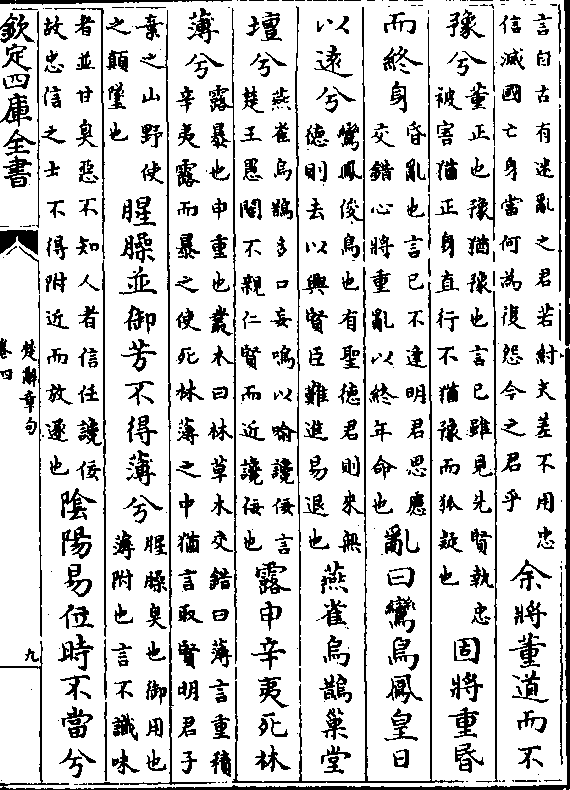 言自古有迷亂之君若紂夫差不用忠
信滅國亡身當何為復怨今之君乎
余將董道而不
豫兮
董正也豫猶豫也言已雖見先賢執忠
被害猶正身直行不猶豫而狐疑也
固將重昏
而終身
昏亂也言已不逢明君思應
交錯心將重亂以終年命也
亂曰鸞鳥鳳皇日
以遠兮
鸞鳳俊鳥也有聖德君則來無
德則去以興賢臣難進易退也
燕雀烏鵲巢堂
壇兮
燕雀烏鵲多口妄鳴以喻讒佞言
楚王愚闇不親仁賢而近讒佞也
露申辛夷死林
薄兮
露暴也申重也叢木曰林草木交錯曰薄言重積
辛夷露而暴之使死林薄之中猶言取賢明君子
棄之山野使
之顛墜也
腥臊並御芳不得薄兮
腥臊臭也御用也
薄附也言不識味
者並甘臭惡不知人者信任讒佞
故忠信之士不得附近而放逐也
陰陽易位時不當兮
欽定四庫全書
楚辭章句
卷四
九